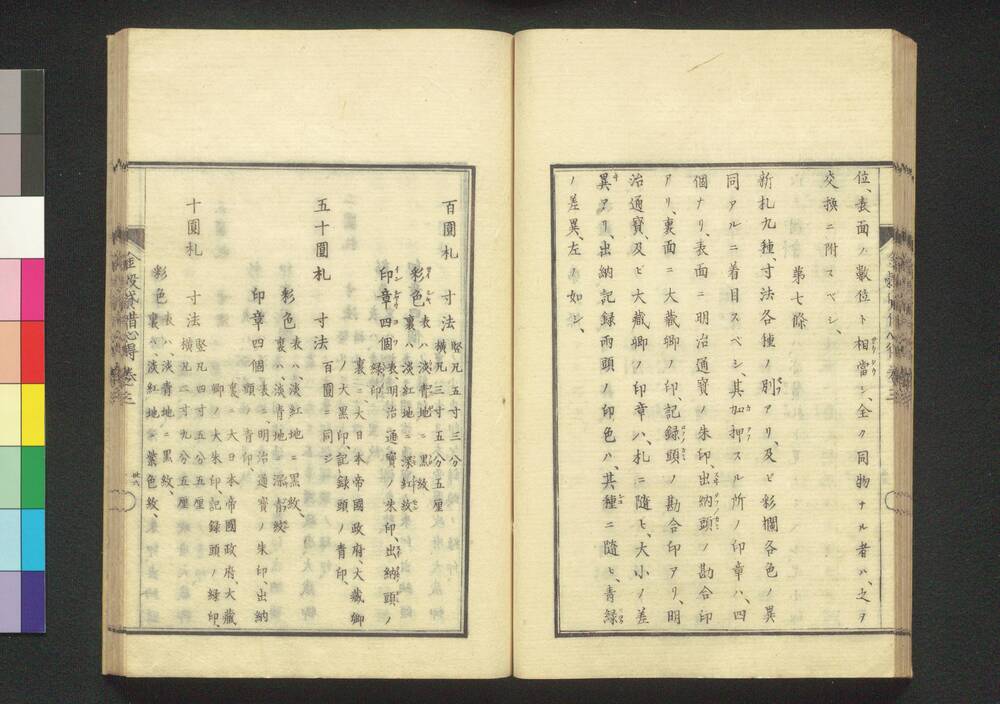 位、表面ノ數位ト相當シ、全ク同物ナル者ハ、之ヲ
交換ニ附スベシ、
第七條
新札九種、寸法各種ノ別アリ、及ビ彩擱各色ノ異
同アルニ着目スベシ、其加押スル所ノ印章ハ、四
個ナリ、表面ニ明治通寳ノ朱印、出納頭ノ勘合印
アリ、裏面ニ大藏卿ノ印、記録頭ノ勘合印アリ、明
治通寳、及ビ大藏卿ノ印章ハ、札ニ隨ヒ、大小ノ差
異アリ、出納記録兩頭ノ印色ハ、其種ニ隨ヒ、青緑
ノ差異、左ノ如シ、
百圓札 寸法 竪凡五寸三分
横凡三寸五分五厘
彩色 表ハ、淡青地ニ黒紋
裏ハ、淡紅地ニ深紅紋
印章四個 表、明治通寳ノ朱印、出納頭ノ
緑印
裏ニ、大日本帝國政府、大藏卿
ノ大黒印、記録頭ノ青印、
五十圓札 寸法 百圓ニ同ジ
彩色 表ハ、淡紅地ニ黒紋、
裏ハ、淡青地ニ深青紋
印章四個 表ニ、明治通寳ノ朱印、出納
頭ノ青印、
裏ニ、大日本帝國政府、大藏
卿ノ大朱印、記録頭ノ緑印、
十圓札 寸法 竪凡四寸五分五厘
横凡二寸九分五厘
彩色 表ハ、淡青地ニ黒紋、
裏ハ、淡紅地ニ紫色紋、
金穀貸借心得 卷之三
廿六